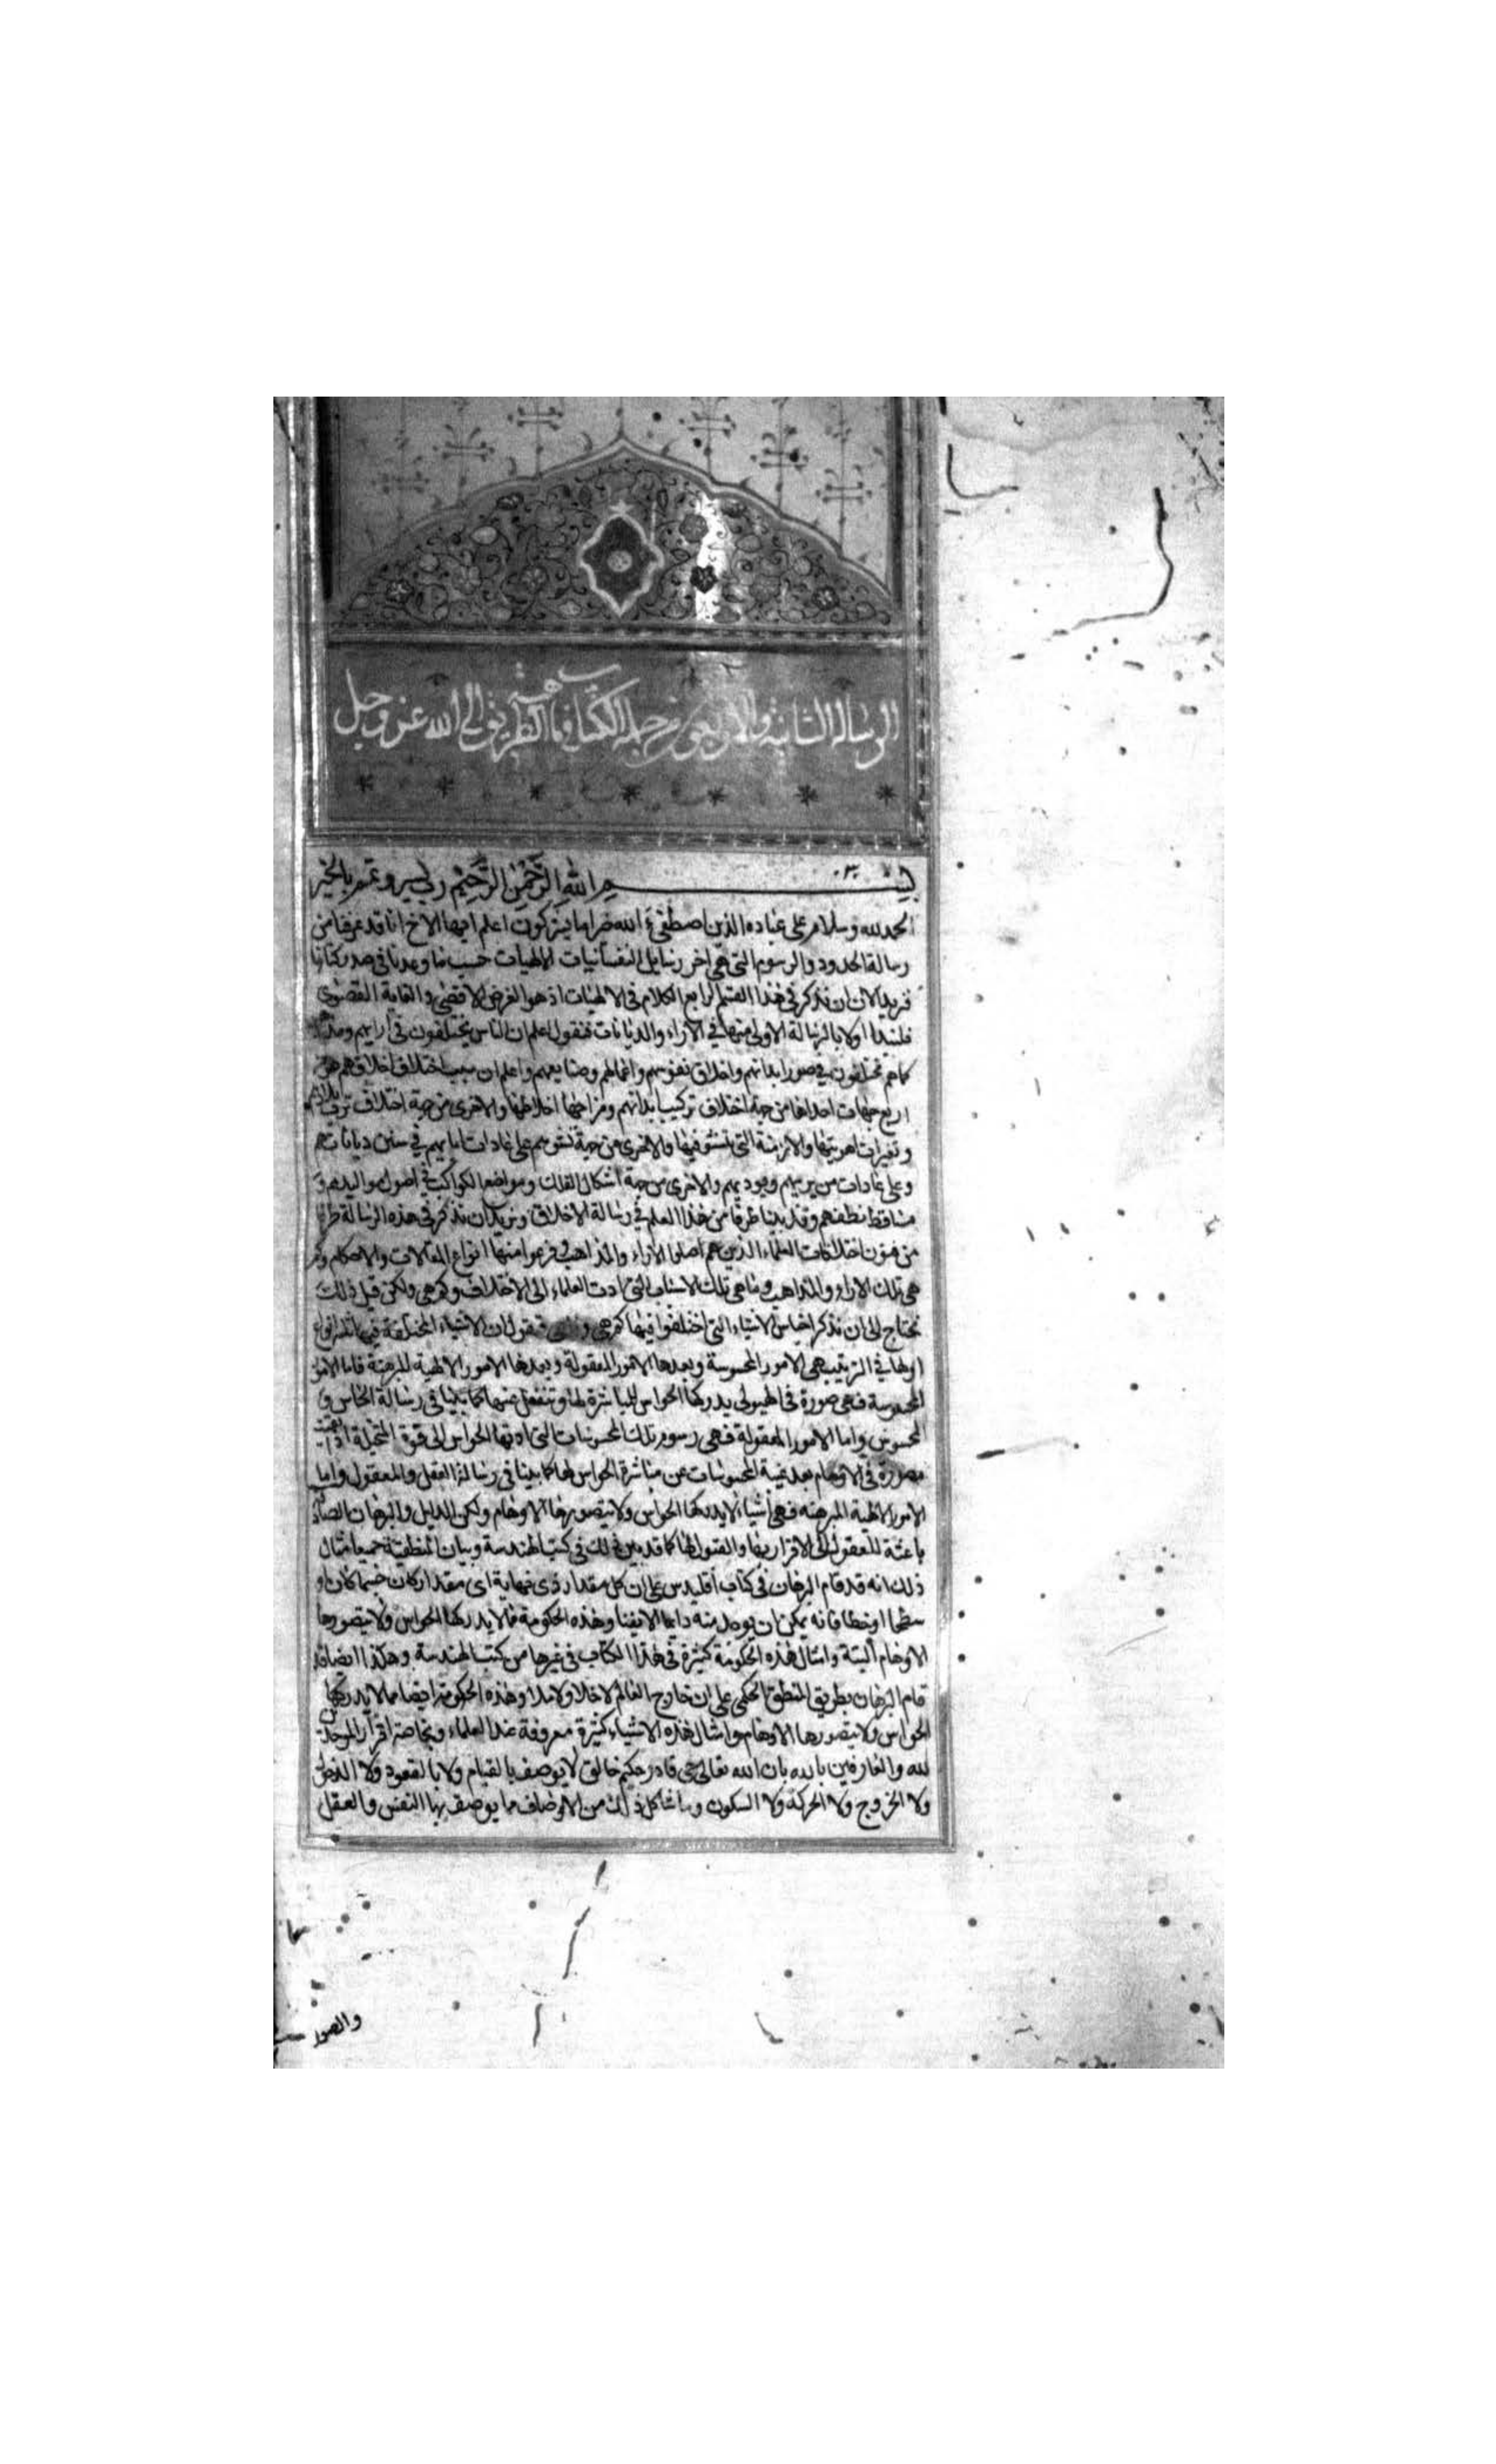 الرسالة الثانية والاربعون من جملة الكتاب في ماهية الطريق الى الله عز وجل
بسم الله الرحمن الرحيم رب يسر وتمم بالخير
الحمد لله وسلام على عباده الذين اصطفى ءالله خير اما يشركون اعلم ايها الاخ انا قد عرفنا من
رسالة الحدود والرسوم التي هي اخر رسايل النفسانيات الالهيات حسب ما وعدنا في صدر كتابنا
فنريد الان ان نذكر في هذا القسم الرابع الكلام في الالهيات اذ هو الغرض الاقصى والغاية القصوى
فلنبدا اولا بالرسالة الاولى منها في الاراء والديانات فنقول اعلم ان الناس يختلفون في ارايهم
كما هم مختلفون في صور ابدانهم واخلاق نفوسهم واعمالهم وصنايعهم واعلم ان سبب اختلاف اخلاقهم هو من
اربع جهات احداها من جهة اختلاف تركيب ابدانهم ومزاجها اخلاطها والاخرى من جهة اختلاف ترب بلادهم
وتغيرات اهويتها والازمنة التي نشؤ فيها والاخرى من جهة نشوهم على عادات ابايهم في سنن دياناتهم
وعلى عادات من يربيهم ويؤدبهم والاخرى من جهة اشكال الفلك ومواضع الكواكب في اصول مواليدهم و
مساقط نطفهم وقد بينا طرفا من هذا العلم في رسالة الاخلاق ونريد ان نذكر في هذه الرسالة طرفا
من فنون اختلافات العلماء الذين هم اصلوا الاراء والمذاهب وفرعوا منها انواع المقالات والاحكام وكم
هي تلك الاراء والمذاهب وما هي تلك الاسباب التي ادت العلماء الى الاختلاف وكم هي ولكن قبل ذلك
نحتاج الى ان نذكر اجناس الاشياء التي اختلفوا فيها كم هي فنقول ان الاشياء المختلفة فيها ثلثة انواع
اولها في الترتيب هي الامور المحسوسة وبعدها الامور المعقولة وبعدها الامور الالهية المبرهنة فاما الامور
المحسوسة فهي صورة في الهيولى يدركها الحواس المباشرة لها وتنفعل عنها كما بينا في رسالة الحاس و
المحسوس واما الامور المعقولة فهي رسوم تلك المحسوسات التي ادتها الحواس الى قوة المتخيلة اذا بقيت
مصورة في الاوهام بعد غيبة المحسوسات عن مباشرة الحواس لها كما بينا في رسالة العقل والمعقول واما
الامور الالهية المبرهنه فهي اشياء لا يدركها الحواس ولا يتصورها الاوهام ولكن الدليل والبرهان الصادق
باعثة للعقول الى الاقرار بها والقبول لها كما قد بين ذلك في كتب الهندسة وبيان المنطقية جميعا مثال
ذلك انه قد قام البرهان في كتاب اقليدس على ان كل مقدار ذي نهاية اي مقدار كان جسما كان او
سطحا او خطا فانه يمكن ان يوجد منه دايما لا يفنا وهذه الحكومة مما لا يدركها الحواس ولا يتصورها
الاوهام البتة وامثال هذه الحكومة كثيرة في هذا الكتاب في غيرها من كتب الهندسة وهكذا ايضا قد
قام البرهان بطريق المنطق الحكمي على ان خارج العالم لا خلا ولا ملا وهذه الحكومة ايضا مما لا يدركها
الحواس ولا يتصورها الاوهام وامثال هذه الاشياء كثيرة معروفة عند العلماء وبخاصة اقرار الموحدين
لله والعارفين بالله بان الله تعالى حي قادر حكيم خالق لا يوصف بالقيام ولا بالقعود ولا الدخول
ولا الخروج ولا الحركة ولا السكون وما شاكل ذلك من الاوصاف مما يوصف بها النفس والعقل
والصور